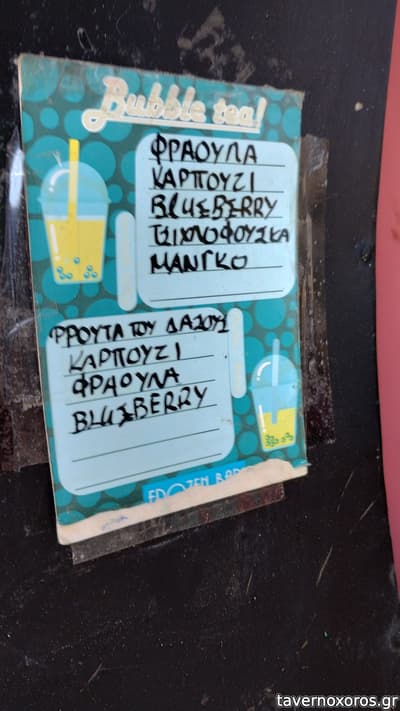 Bubble tea!
ΦΡΑΟΥΛΑ
ΚΑΡΠΟΥΖΙ
BLUEBERRY
ΤΣΙΧΛΟΦΟΥΣΚΑ
ΜΑΝΓΚΟ
ΦΡΟΥΤΑ ΤΟΥ ΔΑΣΟΥΣ
ΚΑΡΠΟΥΖΙ
ΦΡΑΟΥΛΑ
BLUEBERRY
FROZEN
tavernoxoros.gr